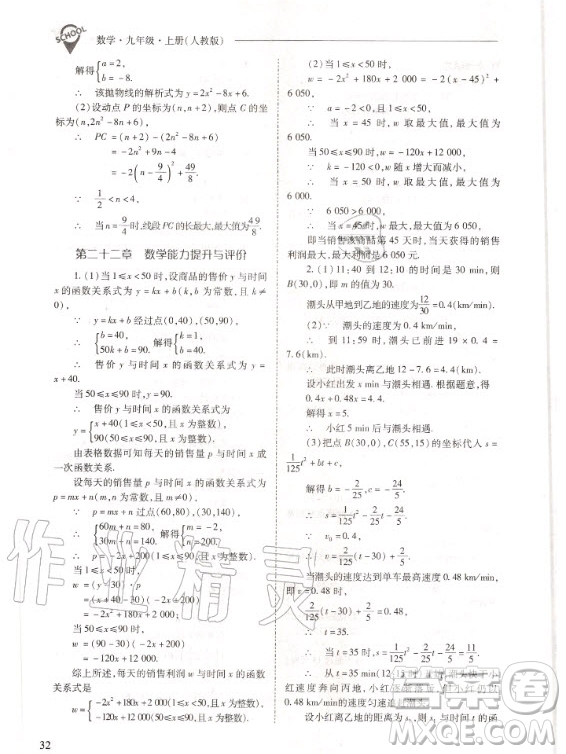 SCHOOL
数学·九年级·上册(人教版)
解得{a=2,
b=-8.
∴ 该抛物线的解析式为 y=2x²-8x+6.
(2)设动点 P 的坐标为(n,n+2),则点 C 的坐
标为(n,2n²-8n+6),
∴ PC=(n+2)-(2n²-8n+6)
=-2n²+9n-4
=-2(n-9/4)²+49/8.
∵ 1/2<n<4,
∴ 当 n=9/4时,线段 PC 的长最大,最大值为49/8.
第二十二章 数学能力提升与评价
1.(1)当 1≤x<50 时,设商品的售价 y 与时间
x 的函数关系式为 y=kx+b(k,b 为常数且 k≠
0).
∵ y=kx+b 经过点(0,40),(50,90),
∴ {b=40,
50k+b=90. 解得{k=1,
b=40.
∴ 售价 y 与时间 x 的函数关系式为 y=
x+40.
当 50≤x≤90 时,y=90.
∴ 售价 y 与时间 x 的函数关系式为
y={x+40(1≤x<50,且 x 为整数),
90(50≤x≤90,且 x 为整数).
由表格数据可知每天的销售量 p 与时间 x 成
一次函数关系.
设每天的销售量 p 与时间 x 的函数关系式为
p=mx+n(m,n 为常数,且 m≠0).
∵ p=mx+n 过点(60,80),(30,140),
∴ {60m+n=80,
30m+n=140. 解得{m=-2,
n=200.
∴ p=-2x+200(0≤x≤90,且 x 为整数).
当 1≤x<50 时,
w=(y-30)·p
=(x+40-30)(-2x+200)
=-2x²+180x+2 000;
当 50≤x≤90 时,
w=(90-30)(-2x+200)
=-120x+12 000.
综上所述,每天的销售利润 w 与时间 x 的函数
关系式是
w={-2x²+180x+2 000(1≤x<50,且 x 为整数),
-120x+12 000(50≤x≤90,且 x 为整数).
32
(2)当 1≤x<50 时,
w=-2x²+180x+2 000=-2(x-45)²+
6 050,
∵ a=-2<0 且 1≤x<50,
∴ 当 x=45 时,w 取最大值,最大值为
6 050.
当 50≤x≤90 时,w=-120x+12 000,
∵ k=-120<0,w 随 x 增大而减小,
∴ 当 x=50 时,w 取最大值,最大值为
6 000.
∵ 6 050>6 000,
∴ 当 x=45 时,w 最大,最大值为 6 050.
即当销售该商品第 45 天时,当天的销售
利润最大,最大利润是 6 050 元.
2.(1)11:40 到 12:10 的时间是 30 min,则
B(30,0),即 m 的值为 30.
潮头从甲地到乙地的速度为12/30=0.4(km/min).
(2)∵ 潮头的速度为 0.4 km/min,
∴ 到 11:59 时,潮头已前进 19×0.4=
7.6(km).
∴ 此时潮头离乙地 12-7.6=4.4(km).
设小红出发 x min 与潮头相遇. 根据题意,得
0.4x+0.48x=4.4.
解得 x=5.
∴ 小红 5 min 后与潮头相遇.
(3)把点 B(30,0),C(55,15)的坐标代入 s=
1/125t²+bt+c,
解得 b=-2/25,c=-24/5.
∴ s=1/125t²-2/25t-24/5.
∵ v₀=0.4,
∴ v=2/125(t-30)+2/5.
当潮头的速度达到单车最高速度 0.48 km/min
时,即 v=0.48 时,2/125(t-30)+2/5=0.48.
∴ t=35.
∴ 当 t=35 时,s=1/125t²-2/25t-24/5=11/5.
∴ 从 t=35 min(12:15)开始,潮头快于小
0.48 km/min 的速度匀速行驶.
设小红离乙地的距离为 s₁,则 s₁ 与时间 t 的函
作业精灵
答案卷